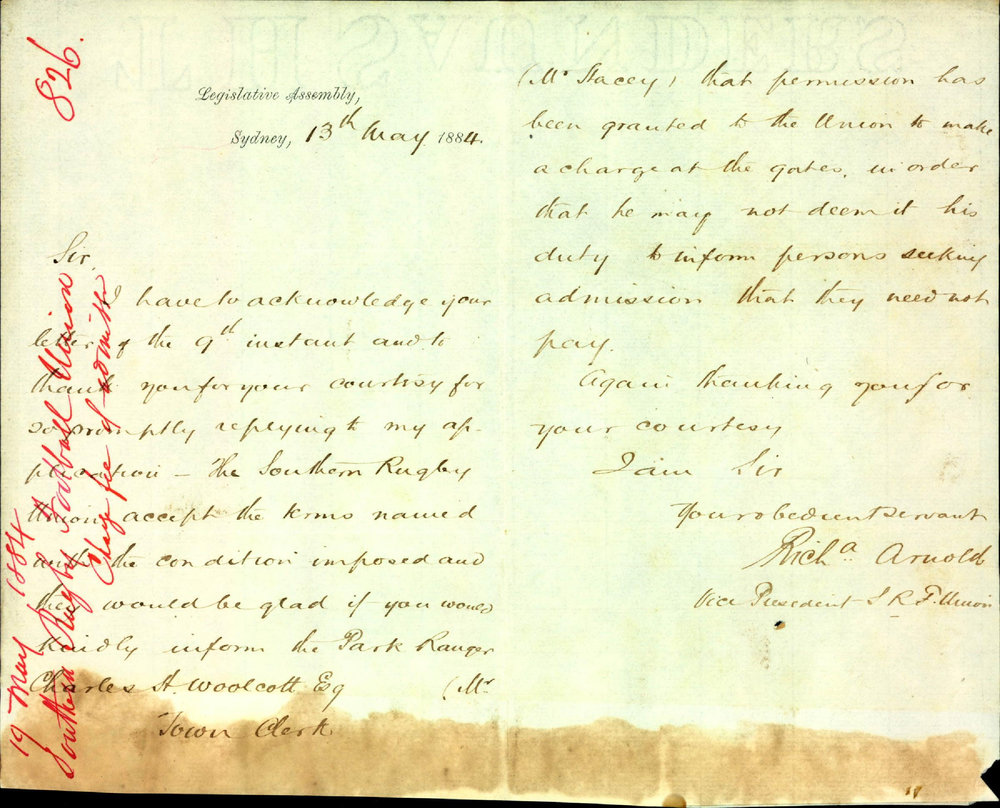 826.
19 May 1884
Southern Rugby Football Union
Charge fee of admitt
Legislative Assembly,
Sydney, 13th May 1884.
Sir,
I have to acknowledge your
letter of the 9th instant and to
thank you for your courtesy for
so promptly replying to my ap-
plication – The Southern Rugby
Union accept the terms named
with the condition imposed and
they would be glad if you would
kindly inform the Park Ranger
Charles H. Woolcott Esq (Mr
Town Clerk
(Mr Stacey) that permission has
been granted to the Union to make
a charge at the gates, in order
that he may not deem it his
duty to inform persons seeking
admission that they need not
pay.
Again thanking you for
your courtesy
I am Sir
Your obedient servant
Richd Arnold
Vice President S R F. Union